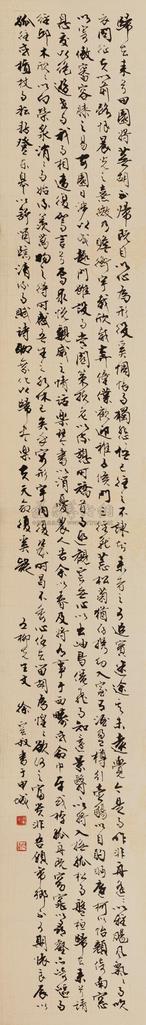 歸去來兮田園將蕪胡不歸既自以心為形役奚惆悵而獨悲悟已往之不諫知來者之可追實迷途其未遠覺今是而昨非舟遙遙以輕颺風飄飄而吹
衣問征夫以前路恨晨光之熹微乃瞻衡宇載欣載奔僮僕歡迎稚子候門三徑就荒松菊猶存攜幼入室有酒盈樽引壺觴以自酌眄庭柯以怡顏倚南窗
以寄傲審容膝之易安園日涉以成趣門雖設而常關策扶老以流憩時矯首而遐觀雲無心以出岫鳥倦飛而知還景翳翳以將入撫孤松而盤桓歸去來兮請
息交以絕遊世與我而相違復駕言兮焉求悅親戚之情話樂琴書以消憂農人告余以春及將有事于西疇或命巾車或棹孤舟既窈窕以尋壑亦崎嶇而
經邱木欣欣以向榮泉涓涓而始流羨萬物之得時感吾生之行休已矣乎寓形宇內復幾時曷不委心任去留胡為遑遑欲何之富貴非吾願帝鄉不可期懷良辰以
孤往或植杖而耘耔登東皋以舒嘯臨清流而賦詩聊乘化以歸盡樂夫天命復奚疑 五柳先生文 徐 書于申城